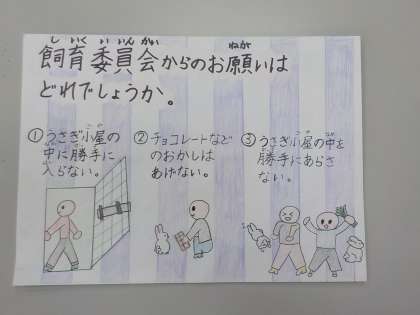 飼育委員会からのお願いは
どれでしょうか。
① うさぎ小屋の
中に勝手に
入らない。
② チョコレートなど
のおかしは
あげない。
③ うさぎ小屋の中を
勝手にあらさ
ない。